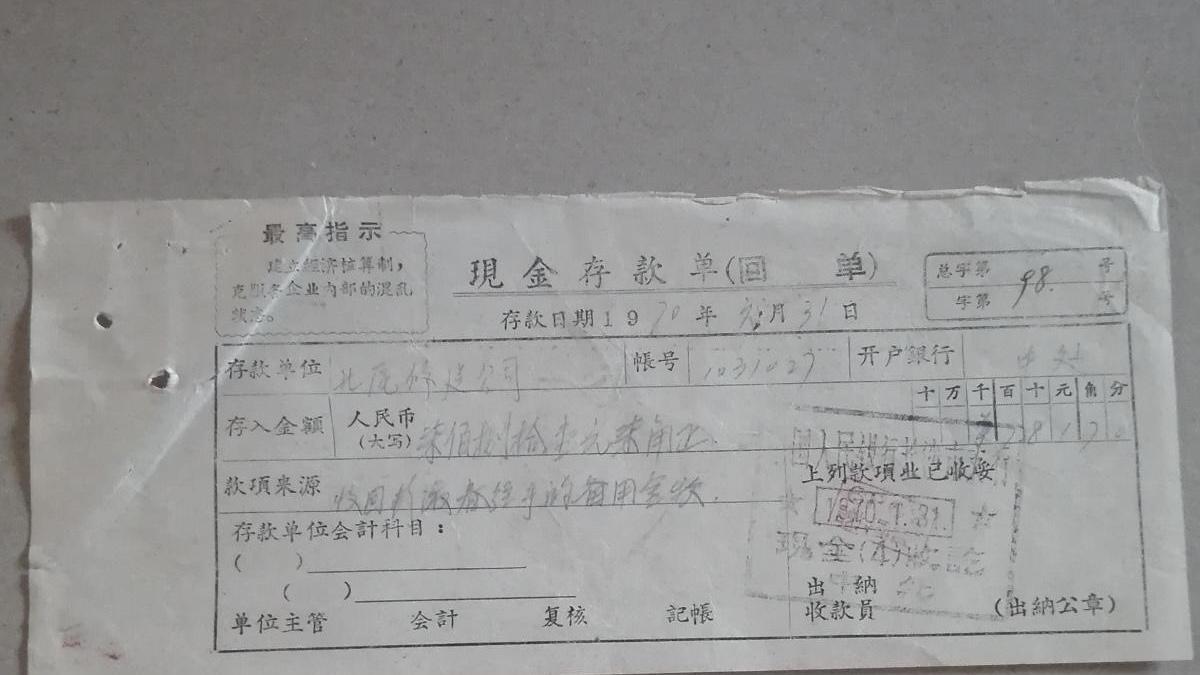 最高指示
建立經济核算制，
克服各企业内部的混乱
状态。
現金存款单(回 单)
总字第 98. 号
字第 号
存款日期1970年元月31日
存款单位 公司 帐号 1031027 开户銀行
存入金額 人民币 柒佰捌拾壹元柒角正 十万千百十元角分
(大写) ¥78170
款項来源
上列款項业已收妥
1970.1.31.
存款单位会計科目：
( )
( )
出納
收款員
(出納公章)
单位主管 会計 复核 記帳